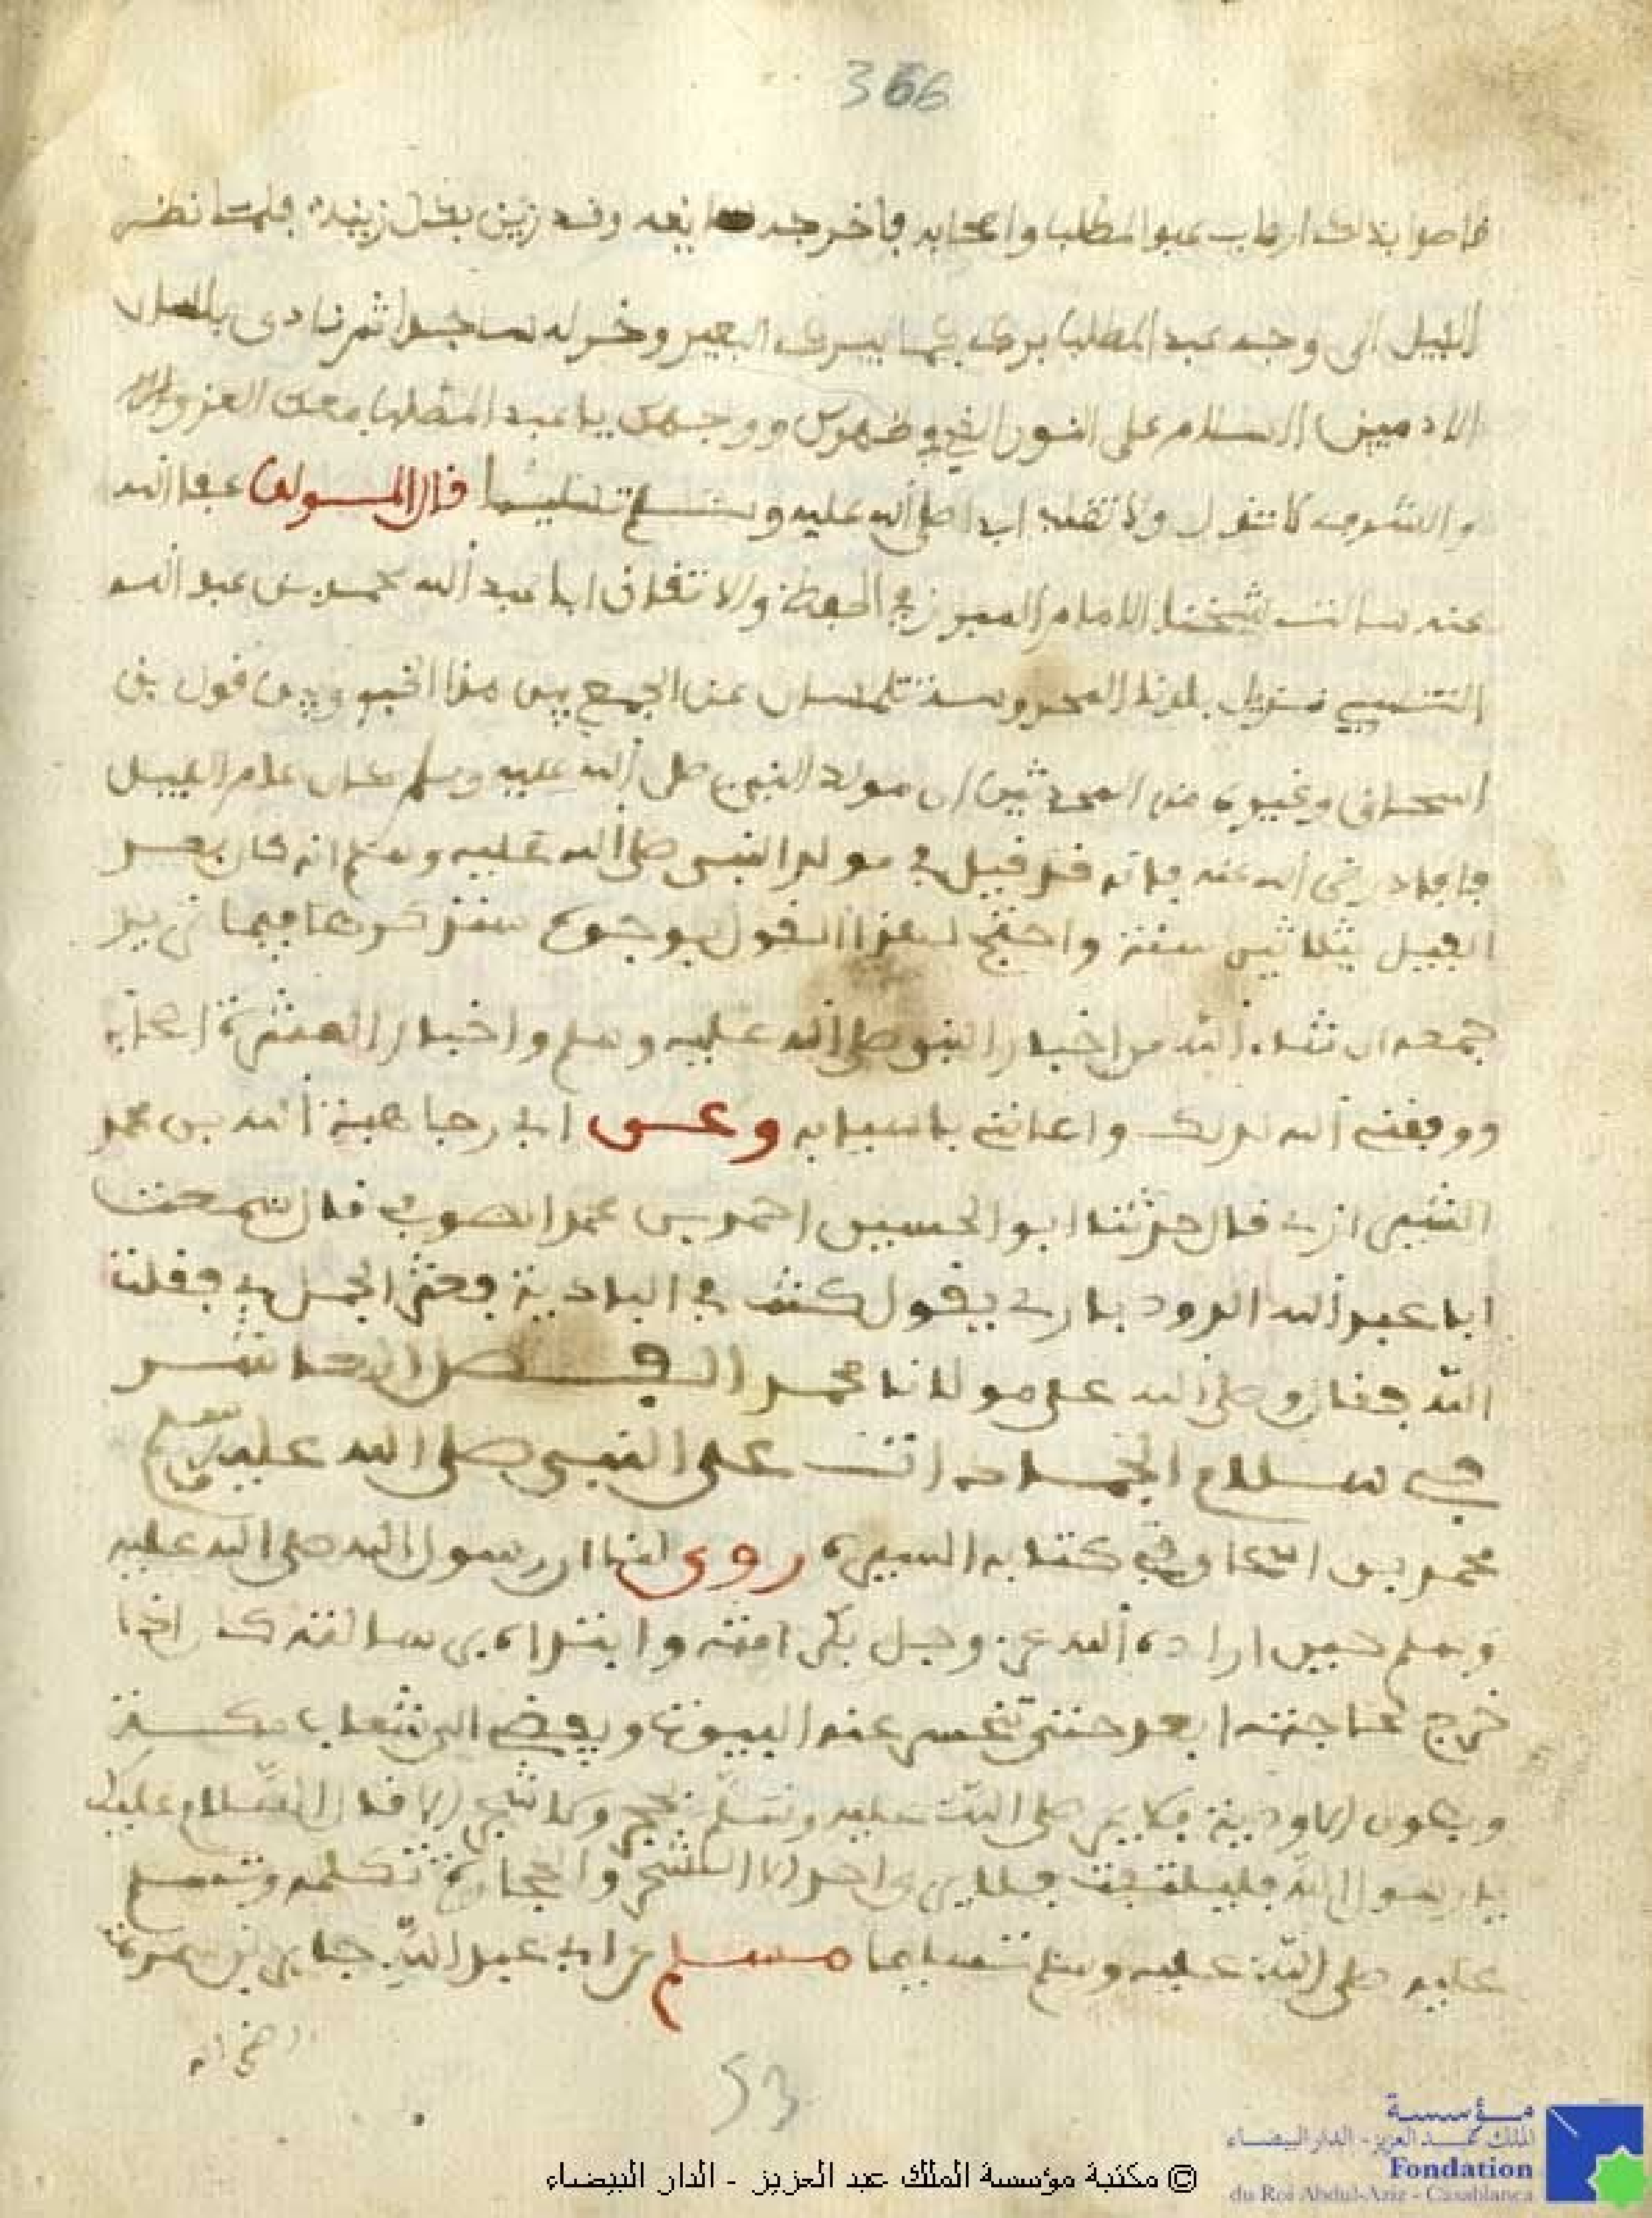 366
بذلك ارهاب عبد المطلب واصحابه فاخرجه سايفه وقد زين بكل زينة فلما نظر
الفيل الى وجه عبد المطلب برك كما يبرك البعير وخر له ساجدا ثم نادى بلسان
الادميين السلام على النور الذي في ظهرك ووجهك يا عبد المطلب معك العز
والشرف لا تذل ولا تغلب ابدا صلى الله عليه وسلم تسليما قال المولف عفا الله
عنه سالت شيخنا الامام المبرز في الحفظ والاتقان ابا عبد الله محمد بن عبد الله
التنسي نزيل بلدنا المحروسة تلمسان عن الجمع بين هذا الخبر وبين قول بن
اسحاق وغيره من المحدثين ان مولد النبي صلى الله عليه وسلم كان عام الفيل
فافاد رضي الله عنه فانه قد قيل في مولد النبي صلى الله عليه وسلم انه كان بعد
الفيل بثلاثين سنة واحتج لهذا القول بوجوه سنذكرها فيما نريد
جمعه ان شاء الله من اخبار النبي صلى الله عليه وسلم واخبار العشرة اصحابه
ووفقني الله لذلك واعانني باسبابه وعن ابي رجا هبة الله بن محمد
الشيرازي قال حدثنا ابو الحسين احمد بن محمد الصوفي قال سمعت
ابا عبد الله الروذباري يقول كنت في البادية فعثر الجمل بي فقلت
الله فقال وصلى الله على مولانا محمد الفصل العاشر
في سلام الجمادات على النبي صلى الله عليه وسلم
محمد بن اسحاق في كتابه السيرة روى لنا ان رسول الله صلى الله عليه
وسلم حين اراده الله عز وجل بكرامته وابتداه برسالته كان اذا
خرج لحاجته ابعد حتى تحسر عنه البيوت ويفضي الى شعاب مكة
وبطون اوديته فلا يمر صلى الله عليه وسلم بحجر ولا شجر الا قال السلام عليك
يا رسول الله فيلتفت فلا يرى احدا الا الشجر والحجارة تكلمه وتسلم
عليه صلى الله عليه وسلم تسليما مسلم عن ابي عبد الله جابر بن سمرة
رضي الله
53
مؤسسة
الملك عبد العزيز - الدار البيضاء
Fondation
du Roi Abdul-Aziz - Casablanca
© مكتبة مؤسسة الملك عبد العزيز - الدار البيضاء